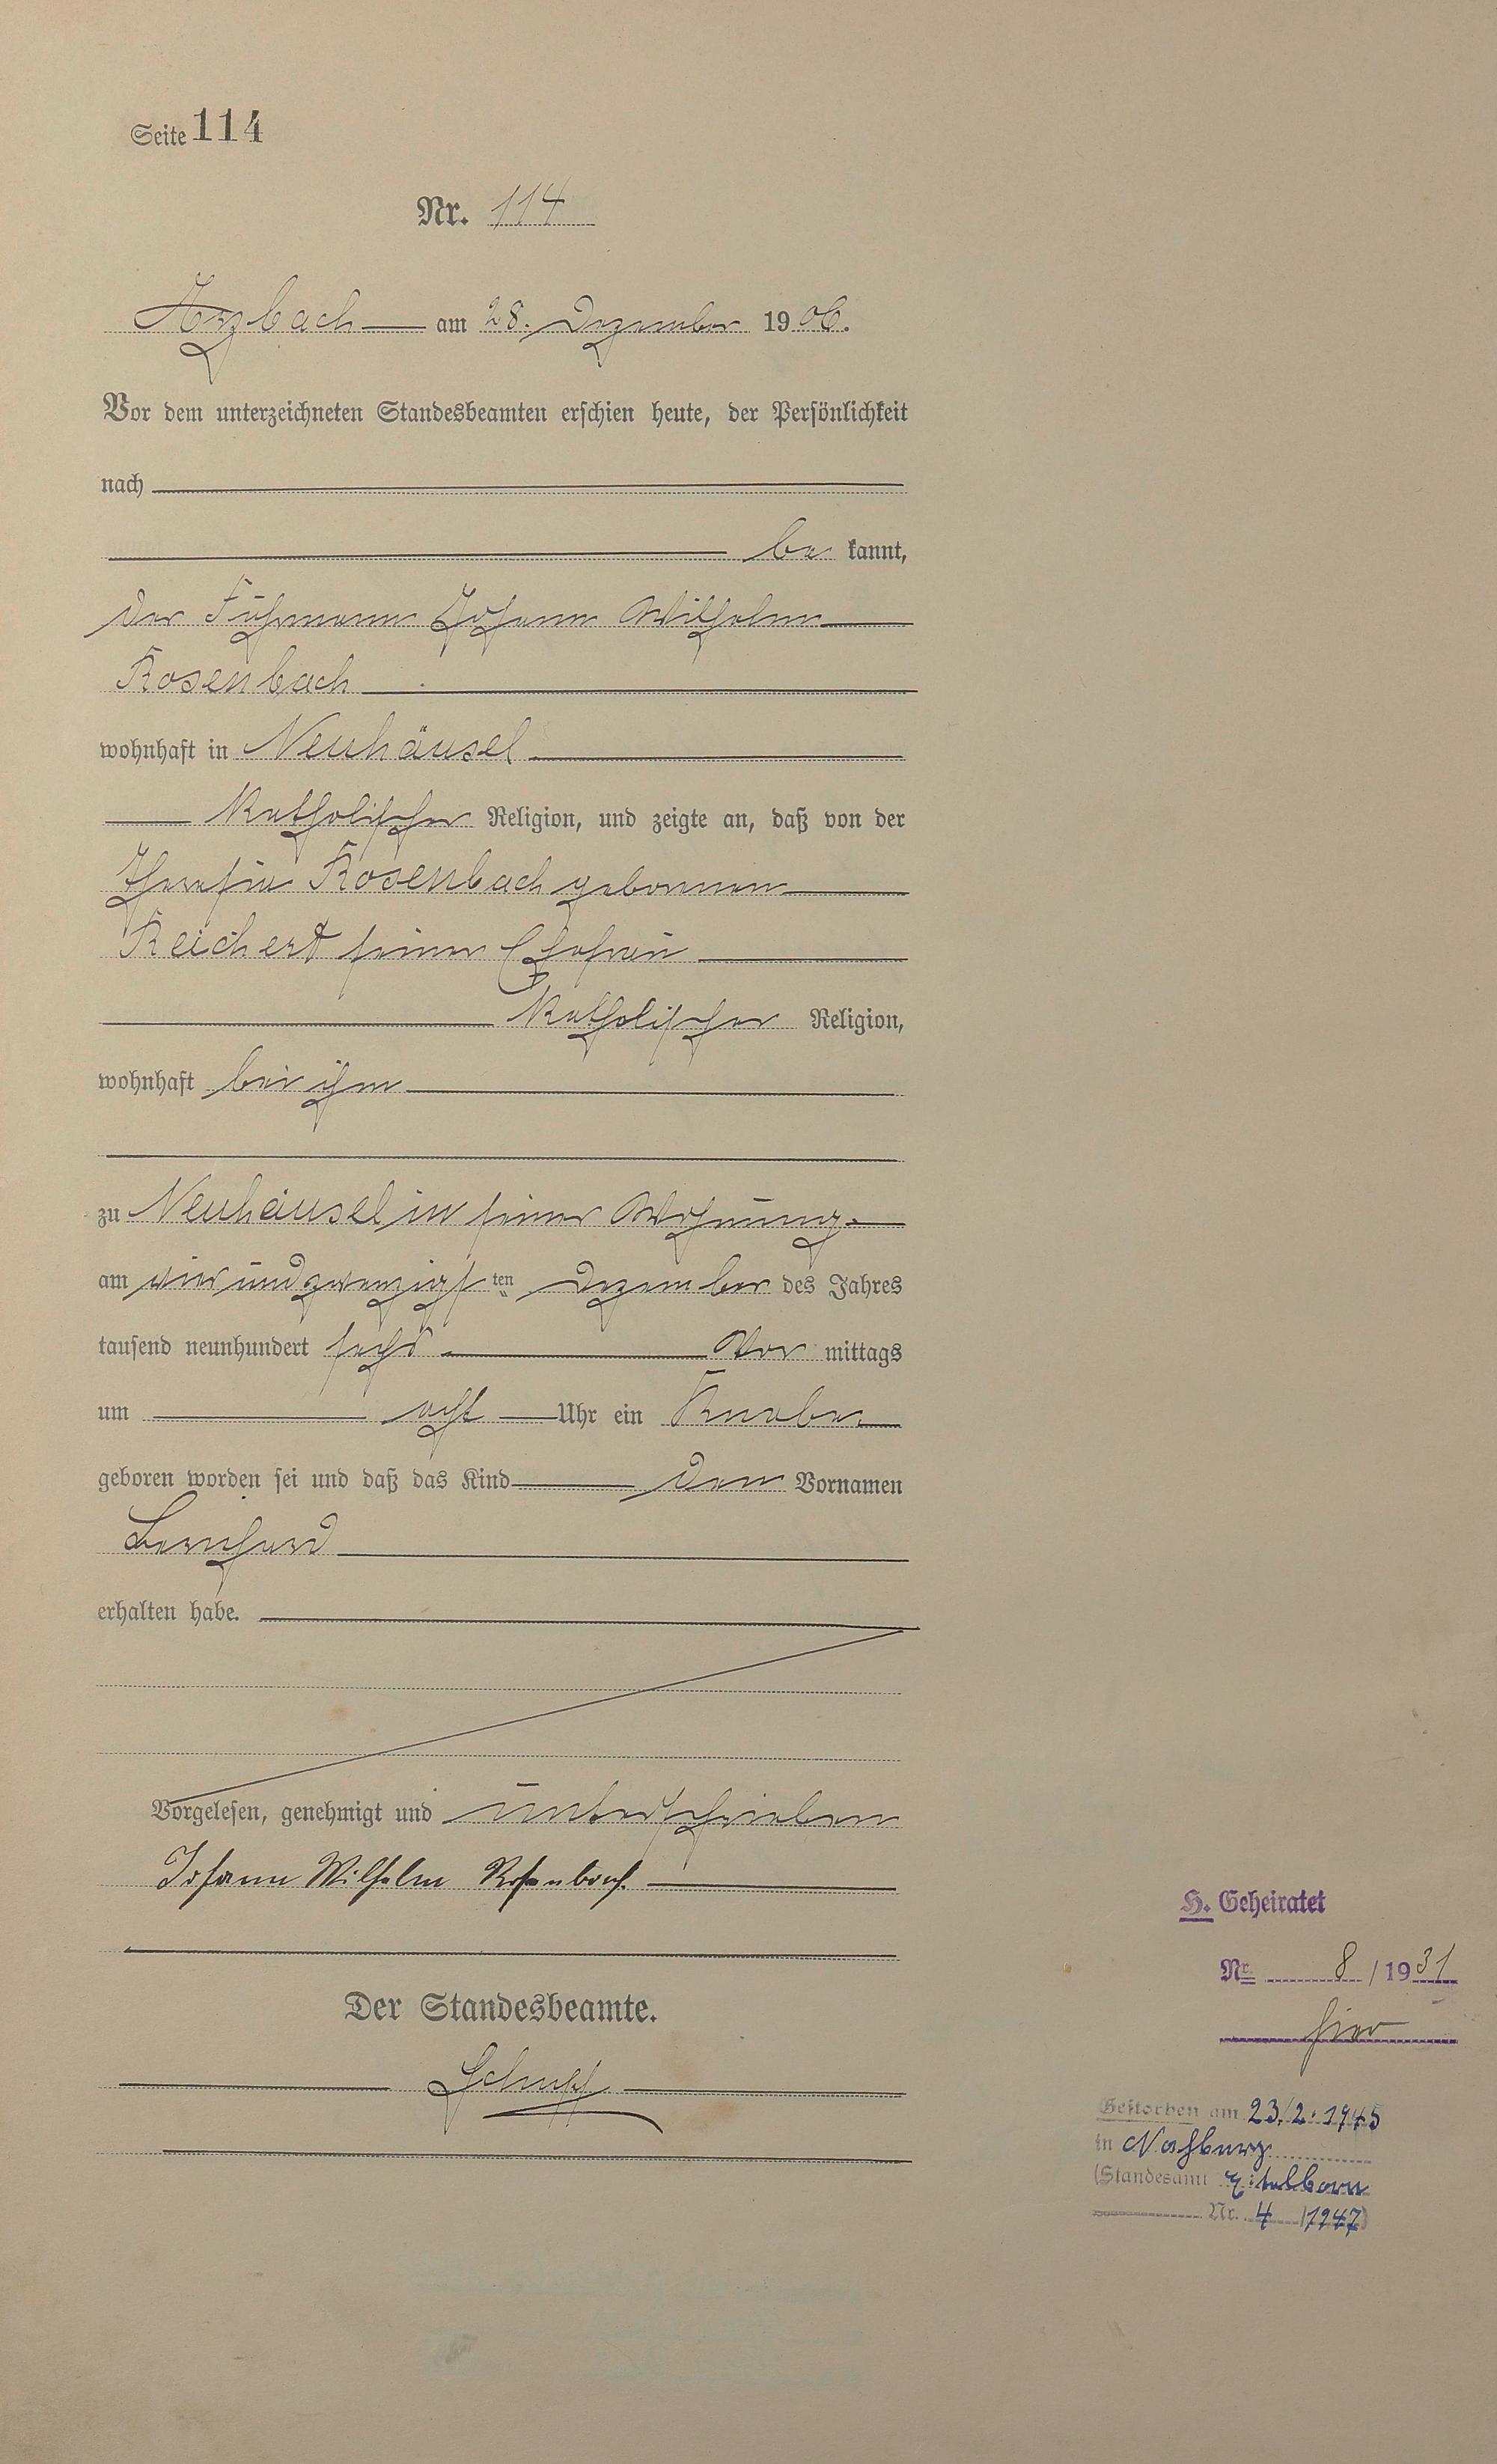 Seite 114
Nr. 114
Arzbach am 28. Dezember 1906.
Vor dem unterzeichneten Standesbeamten erschien heute, der Persönlichkeit
nach
be kannt,
der Fuhrmann Johann Wilhelm
Rosenbach
wohnhaft in Neuhäusel
katholischer Religion, und zeigte an, daß von der
Rosenbach geborenen
Reichert seiner Ehefrau
katholischer Religion,
wohnhaft bei ihm
zu Neuhäusel in seiner Wohnung
am vierundzwanzigsten Dezember des Jahres
tausend neunhundert sechs Vor mittags
um acht Uhr ein Knabe
geboren worden sei und daß das Kind den Vornamen
Bernhard
erhalten habe.
Vorgelesen, genehmigt und unterschrieben
Johann Wilhelm Rosenbach
Der Standesbeamte.
H. Geheiratet
Nr. 8 / 1931
hier
Gestorben am 23.2.1945
in
(Standesamt Eitelborn
Nr. 4 / 1947)